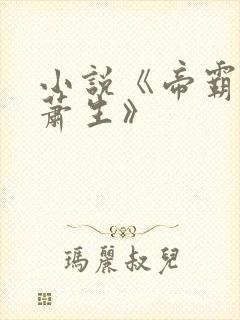 小説《帝霸
蕭生》
瑪麗叔兒